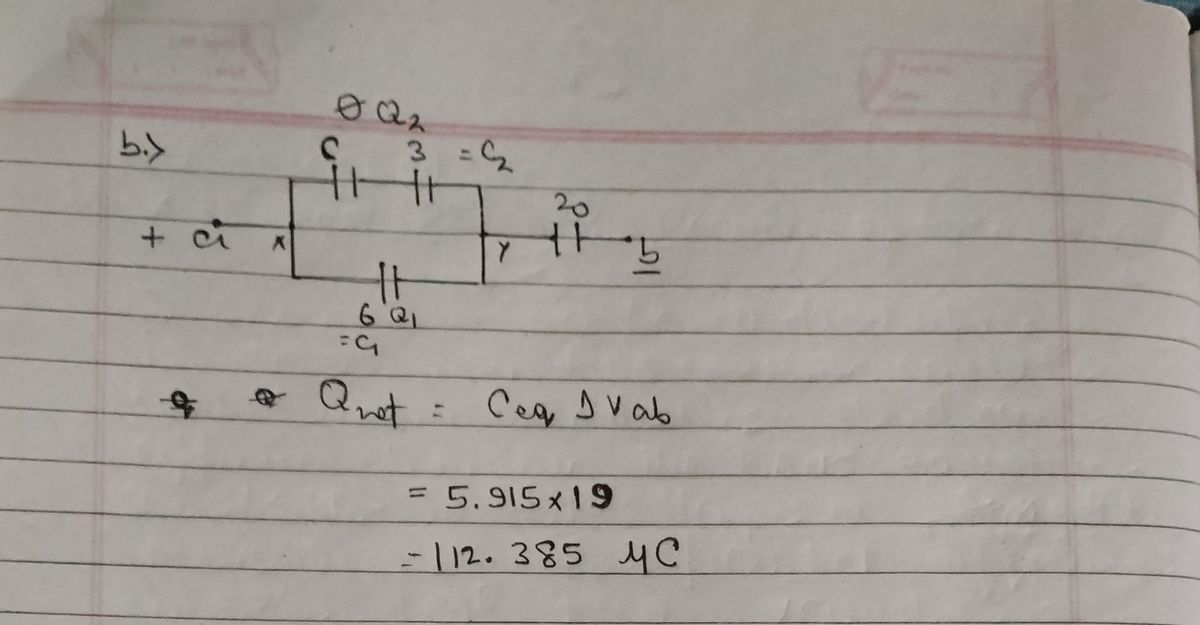 θ Q2
b.) C 3 = C2
20
+ a x y b
6 Q1
= C1
Qnet = Ceq ΔVab
= 5.915 x 19
= 112.385 μC